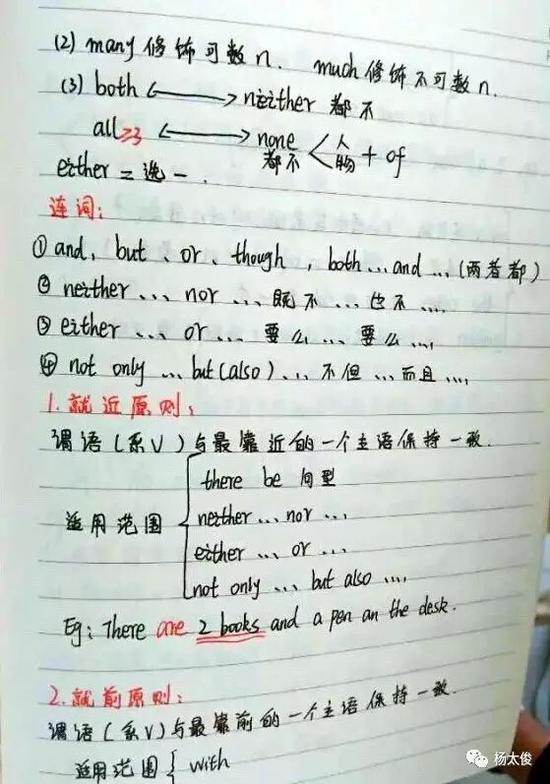 (2) many 修饰可数n. much 修饰不可数n.
(3) both <——> neither 都不
all≥3 <——> none 都不 < 人 物 + of
either = 选一.
连词:
① and, but 、or 、though , both...and ...(两者都)
② neither ... nor ... 既不 ... 也不 ....
③ either ... or ... 要么 ... 要么 ....
④ not only ... but(also) ... 不但 ... 而且 ....
1.就近原则:
谓语(系V)与最靠近的一个主语保持一致.
适用范围 {
there be 句型
neither ... nor ...
either ... or ...
not only ... but also ....
Eg: There are 2 books and a pen an the desk.
2.就前原则:
谓语(系V)与最靠前的一个主语保持一致.
适用范围 { with
杨太俊